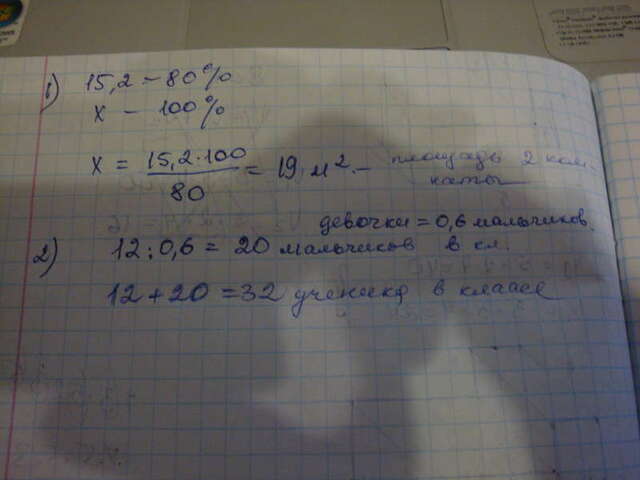 1) 15,2 — 80%
x — 100%
x = 15,2·100 / 80 = 19 м² — площадь 2 ком-
наты
девочки = 0,6 мальчиков.
2) 12 : 0,6 = 20 мальчиков в кл.
12 + 20 = 32 ученика в классе